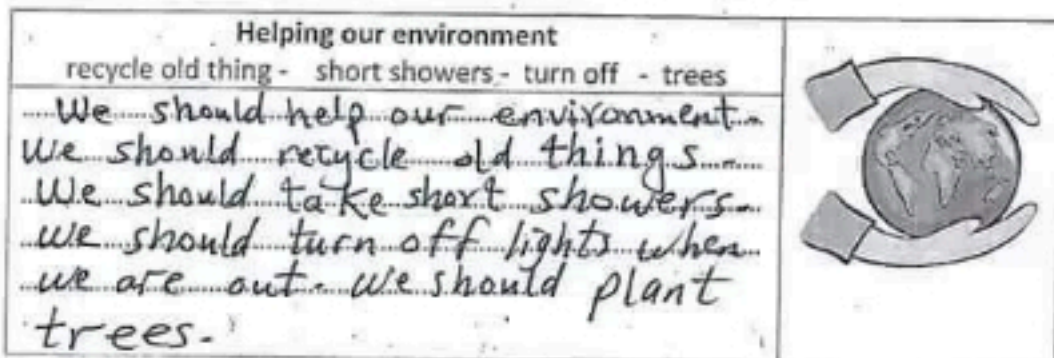 Helping our environment
recycle old thing - short showers - turn off - trees
We should help our environment.
We should recycle old things.
We should take short showers.
we should turn off lights when
we are out. We should plant
trees.